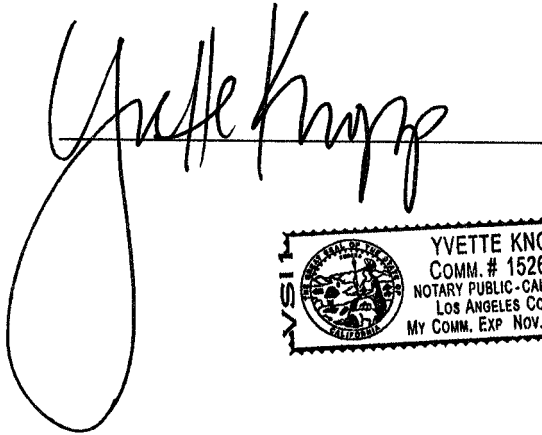 Yvette Knopp
VSI 1
THE GREAT SEAL OF THE STATE OF CALIFORNIA
YVETTE KNO
COMM. # 1526
NOTARY PUBLIC-CAL
LOS ANGELES CO
MY COMM. EXP NOV.